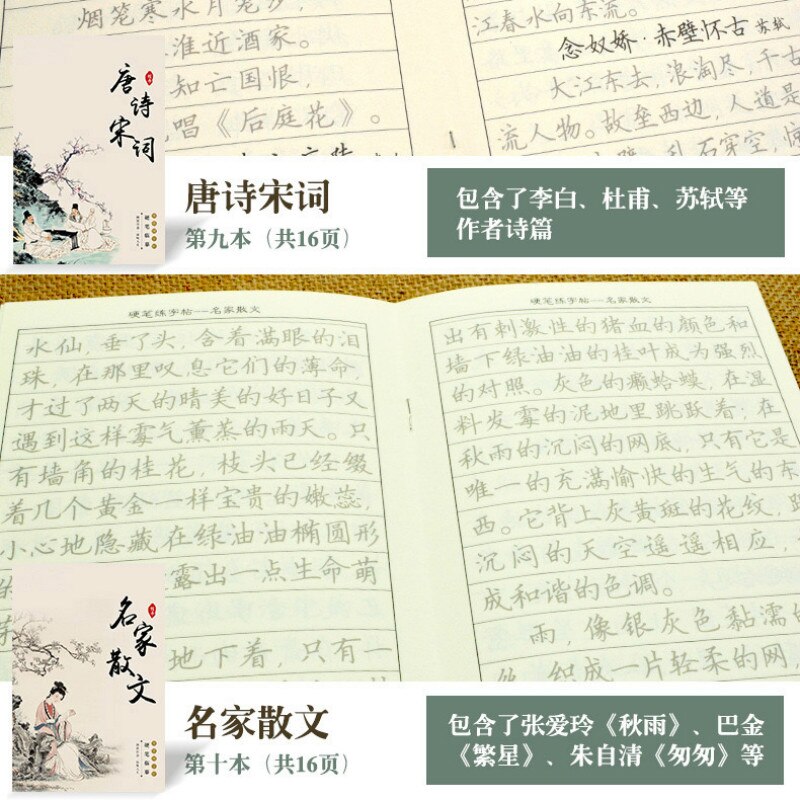 烟笼寒水月笼沙，
淮近酒家。
知亡国恨，
唱《后庭花》。
江春水向东流。
念奴娇·赤壁怀古 苏轼
大江东去，浪淘尽，千古
流人物。故垒西边，人道是
乱石穿空，惊
唐诗宋词
硬笔临摹
唐诗宋词
第九本（共16页）
包含了李白、杜甫、苏轼等
作者诗篇
硬笔练字帖---名家散文
水仙，垂了头，含着满眼的泪
珠，在那里叹息它们的薄命，
才过了两天的晴美的好日子又
遇到这样霉气薰蒸的雨天。只
有墙角的桂花，枝头已经缀
着几个黄金一样宝贵的嫩蕊，
小心地隐藏在绿油油椭圆形
露出一点生命萌
地下着，只有一
硬笔练字帖---名家散文
出有刺激性的猪血的颜色和
墙下绿油油的桂叶成为强烈
的对照。灰色的癞蛤蟆，在湿
料发霉的泥地里跳跃着；在
秋雨的沉闷的网底，只有它是
唯一的充满愉快的生气的东
西。它背上灰黄斑的花纹，跟
沉闷的天空遥遥相应，
成和谐的色调。
雨，像银灰色黏濡的
丝，织成一片轻柔的网，
名家散文
硬笔临摹
名家散文
第十本（共16页）
包含了张爱玲《秋雨》、巴金
《繁星》、朱自清《匆匆》等